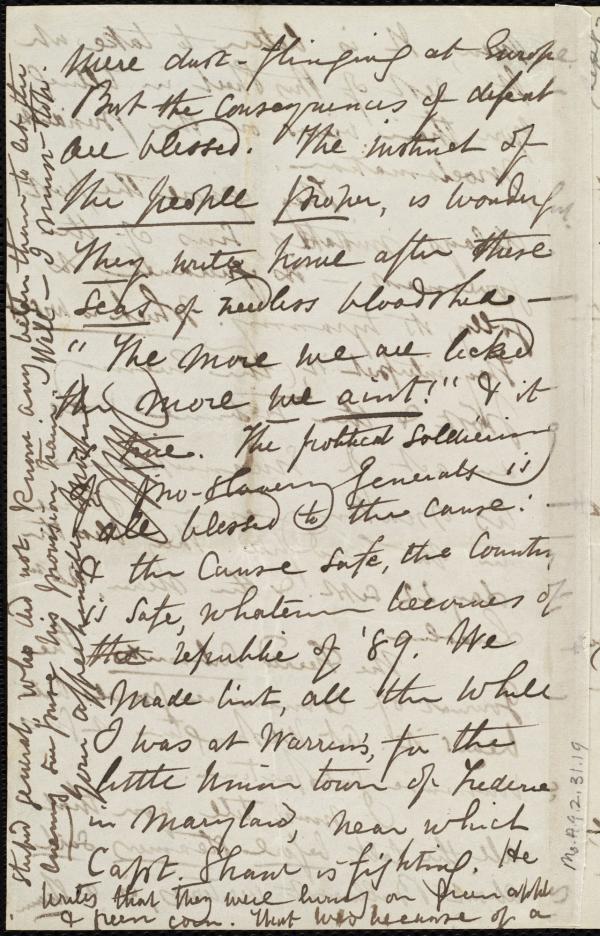 mere dust-flinging at Europe
But the consequences of defeat
are blessed. The instinct of
the people proper, is wonderful.
They write home after these
seas of needless bloodshed —
" The more we are licked
the more we aint!" & it
true. The political soldiering
of pro-slavery Generals is
all blessed to the cause: —
& the Cause safe, the Country
is safe, whatever becomes of
the republic of '89. We
made lint, all the while
I was at Warren's, for the
little Union town of Frederic
in Maryland, near which
Capt. Shaw is fighting. He
writes that they were living on green apples
& green corn. That was because of a
stupid general who did not know any better than to let the
enemy seize his provision train. Well — I must
Your affectionate
Ms.A.9.2.31.19